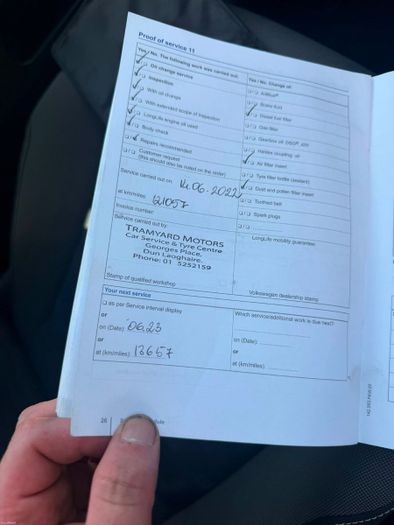 Proof of service 11
Yes / No. The following work was carried out:
Oil change service
Inspection
With oil change
With extended scope of inspection
LongLife engine oil used
Body check
Repairs recommended
Customer request
(this should also be noted on the order)
Service carried out on 14.06.2022
at km/miles:
Invoice number:
Service carried out by:
TRAMYARD MOTORS
Car Service & Tyre Centre
Georges Place,
Dun Laoghaire.
Phone: 01 5252159
Stamp of qualified workshop
Yes / No. Change of:
AdBlue®
Brake fluid
Diesel fuel filter
Gas filter
Haldex coupling oil
Air filter insert
Tyre filler bottle (sealant)
Dust and pollen filter insert
Toothed belt
Spark plugs
LongLife mobility guarantee:
Volkswagen dealership stamp
Your next service
as per Service interval display
or
on (Date): 06.23
or
at (km/miles): 13657
Which service/additional work is due next?
on (Date):
or
at (km/miles):
26